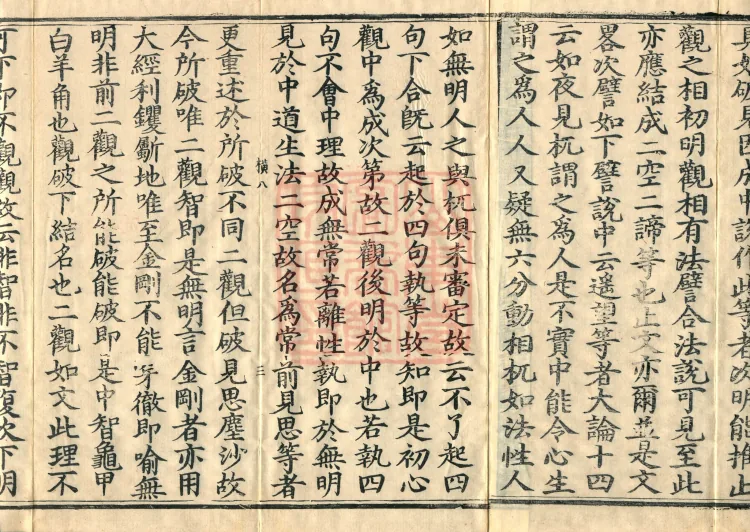 觀之相初明觀相有法譬合法說可見至此
亦應結成二空二諦等也上文亦爾並是文
畧次譬如下譬說中云遥望等者大論十四
云如夜見杌謂之為人是不實中能令心生
謂之為人人又疑無六分動相杌如法性人
如無明人之與杌俱未審定故云不了起四
句下合旣云起於四句執等故知即是初心
觀中為成次第故二觀後明於中也若執四
句不會中理故成無常若離性執即於無明
見於中道生法二空故名為常前見思等者
橫八 三
更重述於所破不同二觀但破見思塵沙故
今所破唯二觀智即是無明言金剛者亦用
大經利钁斸地唯至金剛不能穿徹即喻無
明非前二觀之所能破能破即是中智龜甲
白羊角也觀破下結名也二觀如文此理不